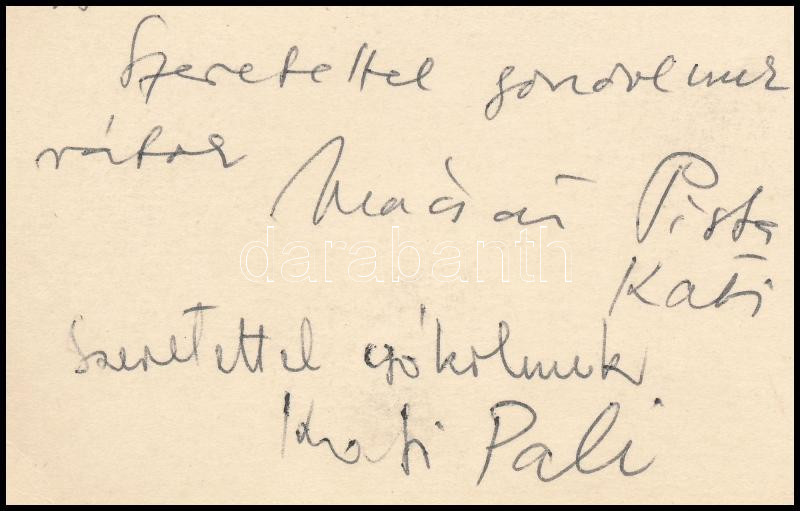 Szeretettel gondolunk
rátok Macsári Pista
Kati
darabanth
Szeretettel csókolunk
Kati Pali